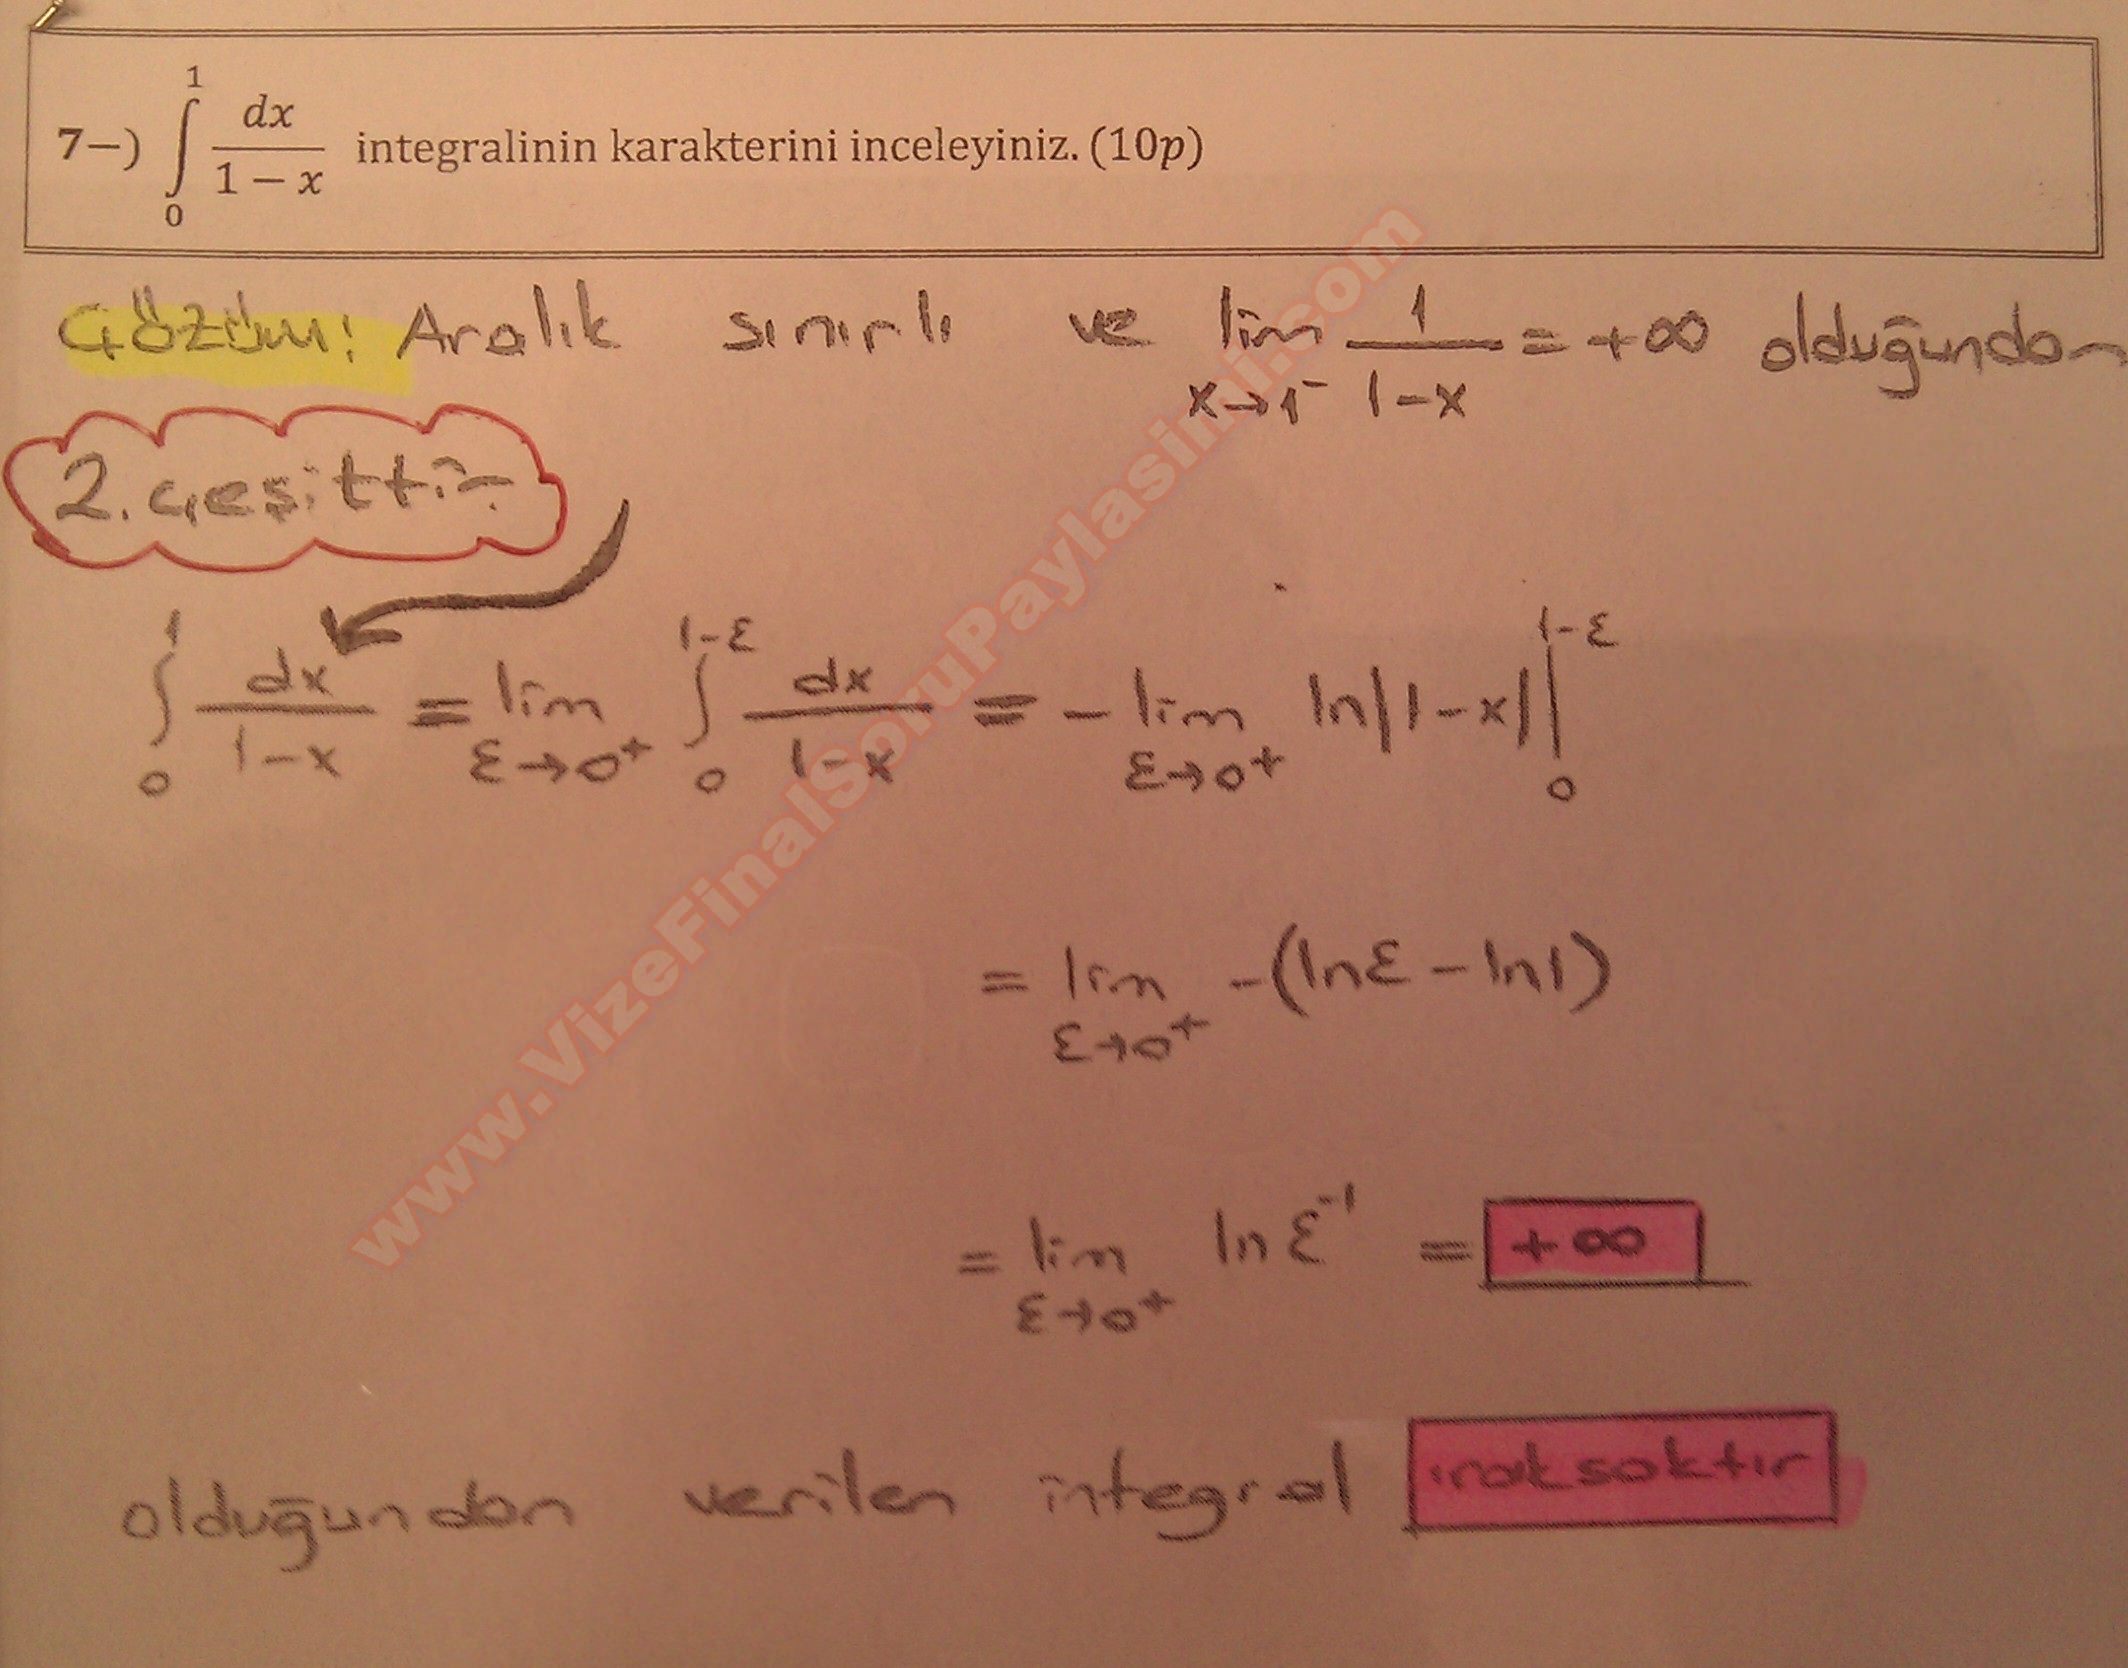 7−) ∫₀¹ dx/(1 − x) integralinin karakterini inceleyiniz. (10p)
Çözüm: Aralık sınırlı ve lim_{x→1⁻} 1/(1-x) = +∞ olduğundan
2. çeşittir.
∫₀¹ dx/(1-x) = lim_{ε→0⁺} ∫₀^{1-ε} dx/(1-x) = - lim_{ε→0⁺} ln|1-x| |₀^{1-ε}
= lim_{ε→0⁺} -(lnε - ln1)
= lim_{ε→0⁺} ln ε⁻¹ = +∞
olduğundan verilen integral ıraksaktır
www.VizeFinalSoruPaylasimi.com